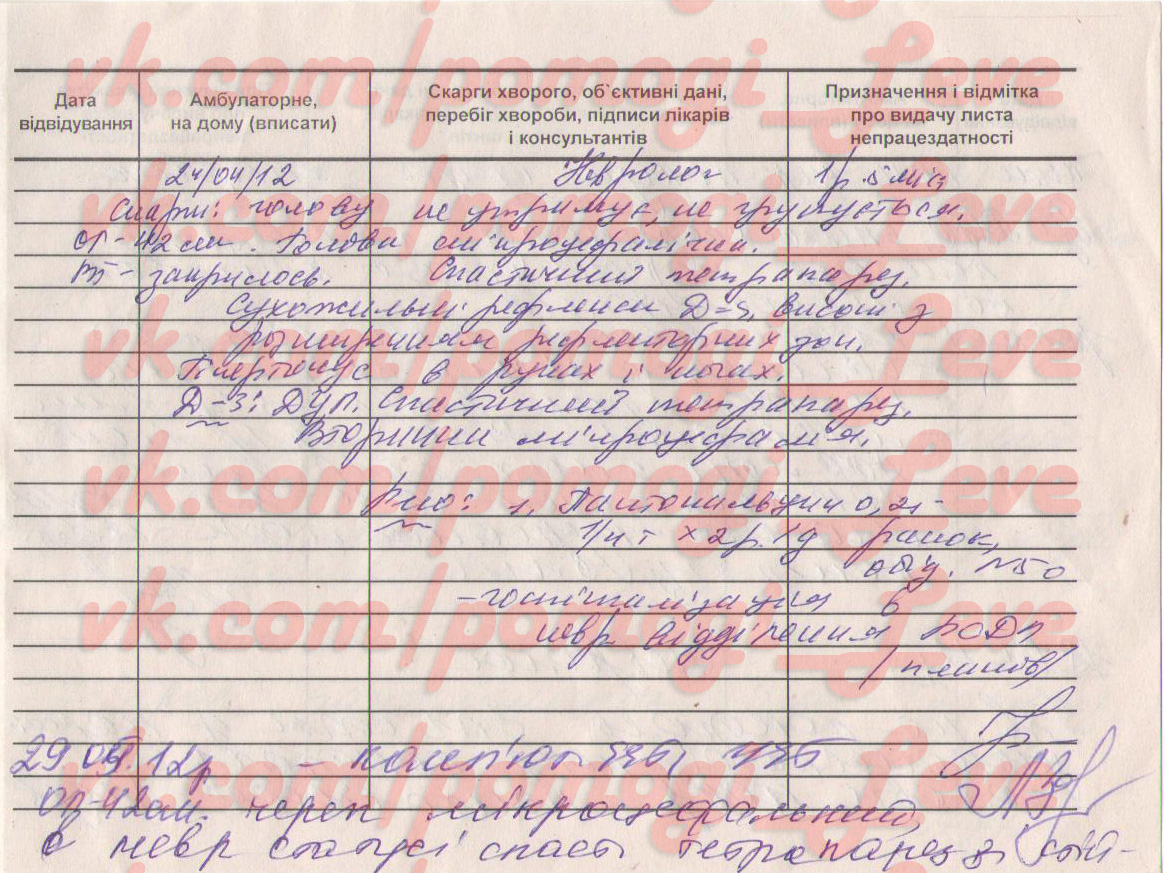 vk.com/pomogi_Leve
Дата відвідування
Амбулаторне, на дому (вписати)
Скарги хворого, об`єктивні дані, перебіг хвороби, підписи лікарів і консультантів
Призначення і відмітка про видачу листа непрацездатності
24/04/12 Невролог 1р. 5міс
Скарги: голову не утримує, не групується.
ОГ-42см. Голова мікроцефалічна.
закрилось. Спастичний тетрапарез.
vk.com/pomogi_Leve
Сухожильні рефлекси Д=S, високі з
розширенням рефлекторних зон.
Гіпертонус в руках і ногах.
Д-з: ДЦП. Спастичний тетрапарез.
Вторинна мікроцефалія.
vk.com/pomogi_Leve
Рио: 1. Пантокальцин 0,25
1/4 т х 2р. 1д ранок,
обід. N50
vk.com/pomogi_Leve
- госпіталізация в
невр відділення
/планов/
29.05.12р
vk.com/pomogi_Leve
ОГ-42см. череп мікроцефальний,
в невр статусі спаст тетрапарез зі